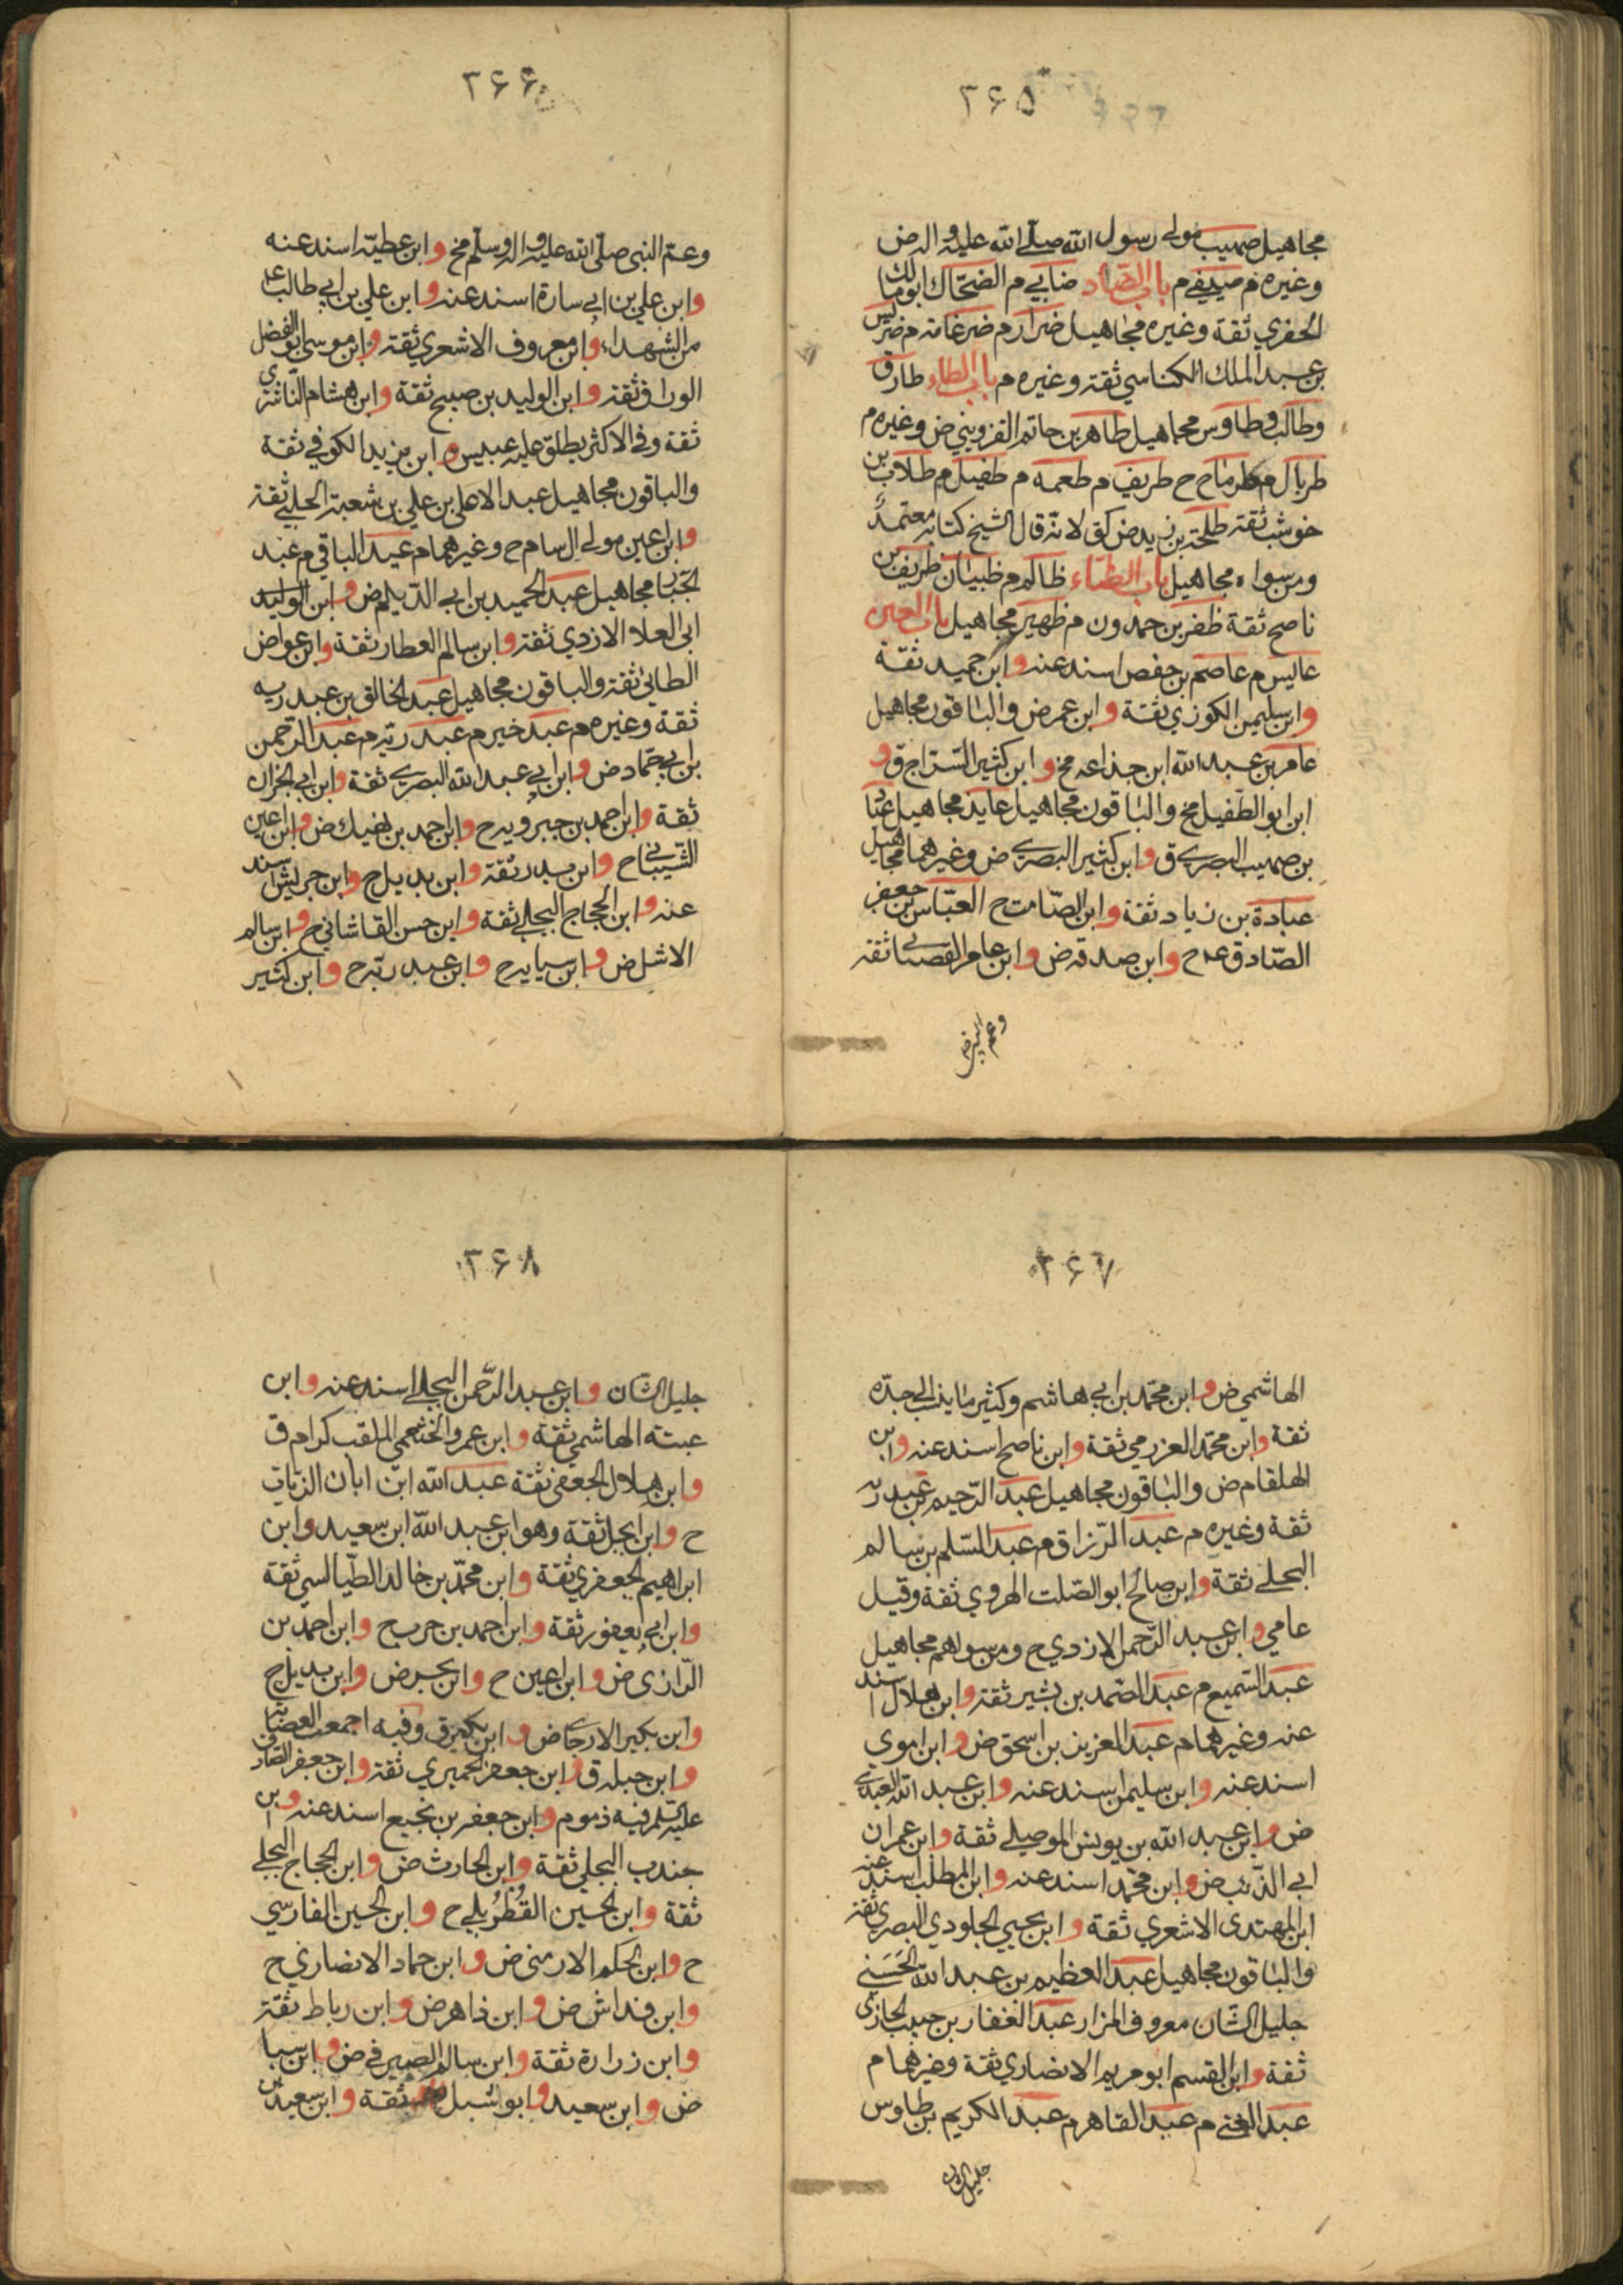 ٣۶۵
مجاهيل صهيب مولى رسول الله صلى الله عليه واله ض
وغيره م صيفي م باب الضاد ضابي م الضحاك ابو مالك
الحضري ثقة وغيره مجاهيل ضرار م ضرغامة م ضريس
بن عبد الملك الكناسي ثقة وغيره م باب الطاء طارق
وطالب وطاوس مجاهيل طاهر بن حاتم القزويني ض وغيره م
طربال م طرماح ح طريف م طعمه م طفيل م طلاب بن
خوشب ثقة طلحة بن زيد ض كق لانه قال الشيخ كتابه معتمد
ومن سواه مجاهيل باب الظاء ظالم م ظبيان ظريف بن
ناصح ثقة ظفر بن حمدون م ظهير مجاهيل باب العين
عابس م عاصم بن حفص اسند عنه وابن حميد ثقة
وابن سليمن الكوزي ثقة وابن عمر ض والباقون مجاهيل
عامر بن عبد الله ابن جذاعه مخ وابن كثير السراج ق و
ابن ابو الطفيل مخ والباقون مجاهيل عايذ مجاهيل عباد
بن صهيب البصري ق وابن كثير البصري ض وغيرهما مجاهيل
عبادة بن زياد ثقة وابن الصامت ح العباس بن جعفر
الصادق ع م ح وابن صدقه ض وابن عامر القصباني ثقة
٣۶۶
وعم النبي صلى الله عليه واله وسلم مخ وابن عطية اسند عنه
وابن علي بن ابي سارة اسند عنه وابن علي بن ابي طالب ع
من الشهداء وابن معروف الاشعري ثقة وابن موسى ابو الفضل
الوراق ثقة وابن الوليد بن صبيح ثقة وابن هشام الناشري
ثقة وفي الاكثر يطلق عليه عبيس وابن يزيد الكوفي ثقة
والباقون مجاهيل عبد الاعلى بن علي بن شعبة الحلبي ثقة
وابن اعين مولى ال سام ح وغيرهما م عبد الباقي م عبد
الجبار مجاهيل عبد الحميد بن ابي الديلم ض وابن الوليد
ابى العلا الازدي ثقة وابن سالم العطار ثقة وابن عواض
الطائي ثقة والباقون مجاهيل عبد الخالق بن عبد ربه
ثقة وغيره م عبد خير م عبد ربه م عبد الرحمن
بن ابي حماد ض وابن ابي عبد الله البصري ثقة وابن ابي نجران
ثقة وابن احمد بن جبرويه ح وابن احمد بن نهيك ض وابن اعين
الشيباني ح وابن بدر ثقة وابن بديل ح وابن جريش اسند
عنه وابن الحجاج البجلي ثقة وابن حسن القاشاني ح وابن سالم
الاشل ض وابن سيابه ح وابن عبد ربه ح وابن كثير
٣۶٧
الهاشمي ض وابن محمد بن ابي هاشم وكثير ما ينسب الى جده
ثقة وابن محمد العزرمي ثقة وابن ناصح اسند عنه وابن
الهلقام ض والباقون مجاهيل عبد الرحيم بن عبد ربه
ثقة وغيره م عبد الرزاق م عبد السلم بن سالم
البجلي ثقة وابن صالح ابو الصلت الهروي ثقة وقيل
عامي وابن عبد الرحمن الازدي ح ومن سواهم مجاهيل
عبد السميع م عبد الصمد بن بشير ثقة وابن هلال اسند
عنه وغيرهما م عبد العزيز بن اسحق ض وابن اموي
اسند عنه وابن سليمن اسند عنه وابن عبد الله العبدي
ض وابن عبد الله بن يونس الموصلي ثقة وابن عمران
ابي الذئب ض وابن محمد اسند عنه وابن المطلب اسند عنه
ابن المهتدى الاشعري ثقة وابن يحيي الجلودي البصري ثقة
والباقون مجاهيل عبد العظيم بن عبد الله الحسني
جليل الشان معروف المزار عبد الغفار بن حبيب الجازي
ثقة وابن القسم ابو مريم الانصاري ثقة وغيرهما م
عبد الغني م عبد القاهر م عبد الكريم بن طاوس
جليل الشان
٣۶٨
جليل الشان وابن عبد الرحمن البجلي اسند عنه وابن
عتبه الهاشمي ثقة وابن عمرو الخثعمي الملقب كرام ق
وابن هلال الجعفي ثقة عبد الله ابن ابان الزيات
ح وابن ابجل ثقة وهو ابن عبد الله ابن سعيد وابن
ابراهيم الجعفري ثقة وابن محمد بن خالد الطيالسي ثقة
وابن ابي يعفور ثقة وابن احمد بن حرب ح وابن احمد بن
الرازى ض وابن اعين ح وابن بحر ض وابن بديل ح
وابن بكير الارجاني ض وابن بكير ق وفيه اجمعت العصابة
وابن جبله ق وابن جعفر الحميري ثقة وابن جعفر الصادق
عليه السلم فيه ذموم وابن جعفر بن نجيح اسند عنه وابن
جندب البجلي ثقة وابن الحارث ض وابن الحجاج البجلي
ثقة وابن الحسين القطربلي ح وابن الحسين الفارسي
ح وابن الحكم الارمنى ض وابن حماد الانصاري ح
وابن خداش ض وابن داهر ض وابن رباط ثقة
وابن زرارة ثقة وابن سالم الصيرفي ض وابن سبا
ض وابن سعيد وابو شبل ثقة وابن سعيد بن